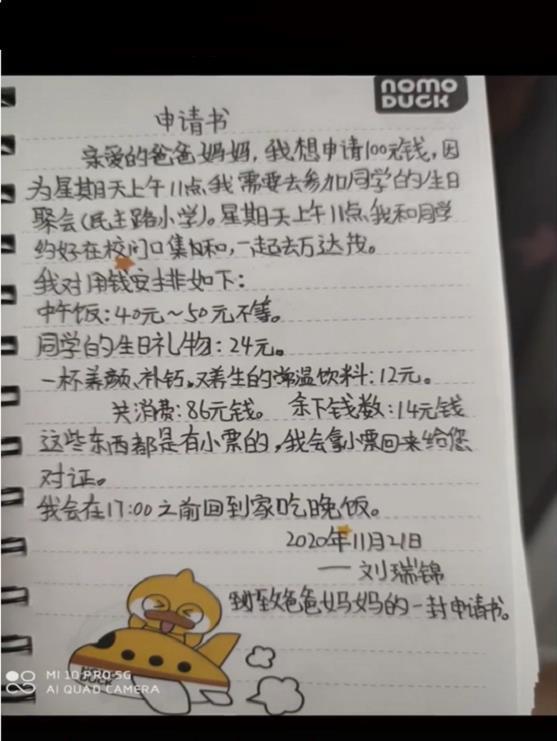 nomo
DUCK
申请书
亲爱的爸爸妈妈，我想申请100元钱，因
为星期天上午11点我需要去参加同学的生日
聚会(民主路小学)。星期天上午11点我和同学
约好在校门口集合和，一起去万达茂。
我对用钱安排如下：
中午饭：40元～50元不等。
同学的生日礼物：24元。
一杯养颜、补钙。又养生的常温饮料：12元。
共消费：86元钱。 余下钱数：14元钱
这些东西都是有小票的，我会拿小票回来给您
对证。
我会在17:00之前回到家吃晚饭。
2020年11月21日
——刘瑞锦
致爸爸妈妈的一封申请书。
DUCK
MI 10 PRO·5G
AI QUAD CAMERA